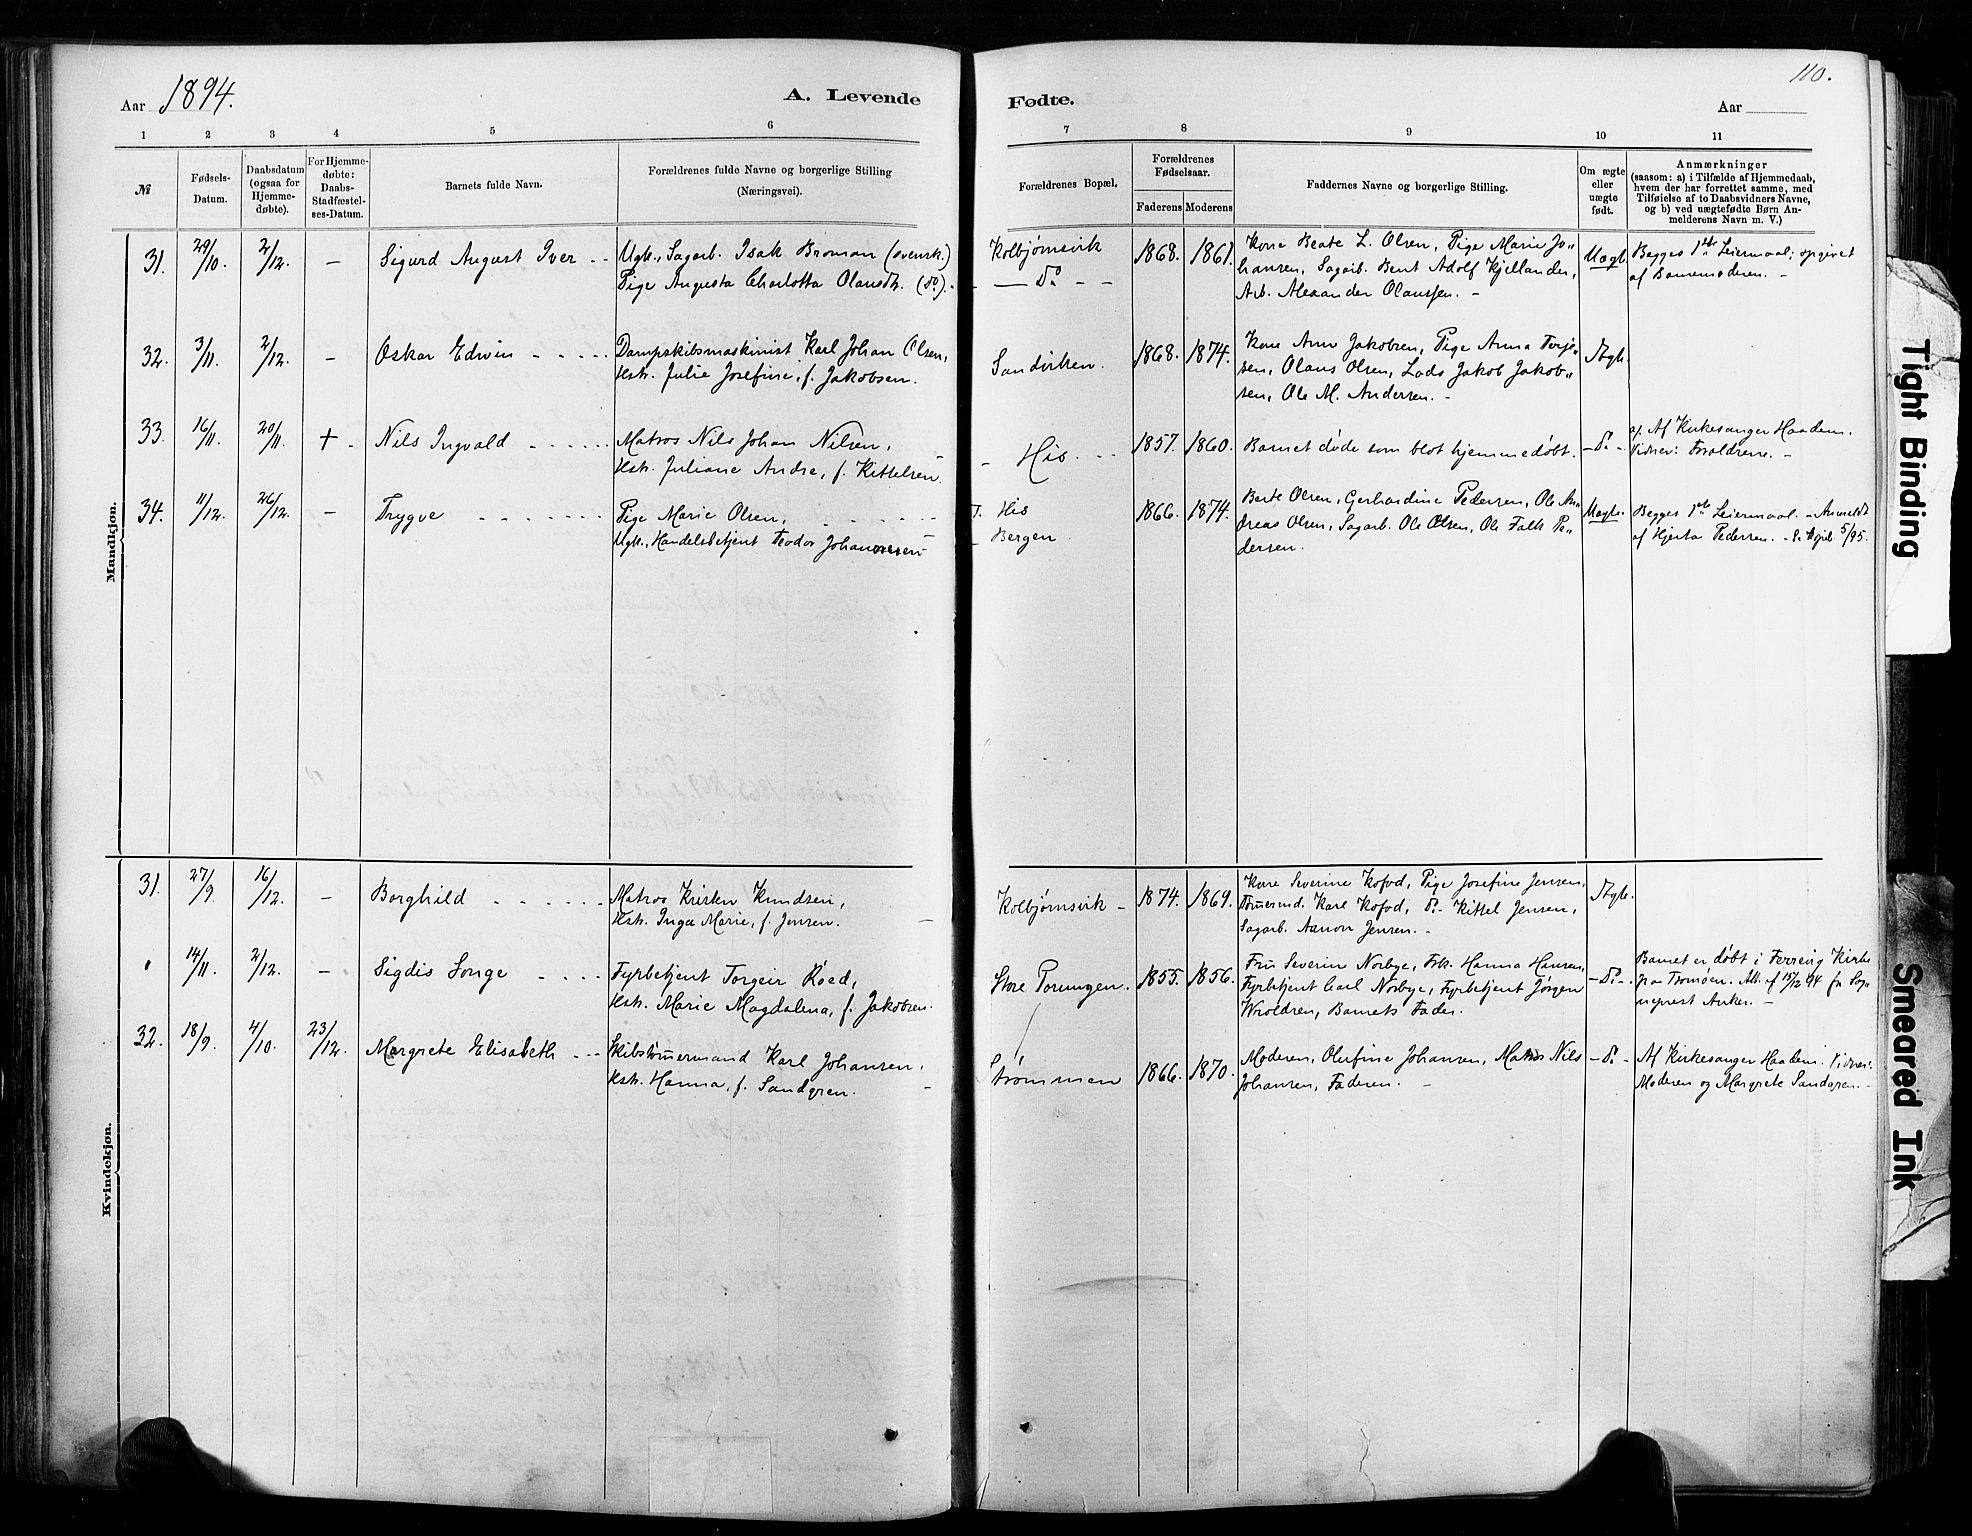 110.
Aar 1894.
A. Levende
Fødte.
Aar
1 2 3 4 5 6
7 8 9 10 11
№
Fødsels-
Datum.
Daabsdatum
(ogsaa for
Hjemme-
døbte).
For Hjemme-
døbte:
Daabs-
Stadfæstel-
ses-Datum.
Barnets fulde Navn.
Forældrenes fulde Navne og borgerlige Stilling
(Næringsvei).
Forældrenes Bopæl.
Forældrenes
Fødselsaar.
Faderens Moderens
Faddernes Navne og borgerlige Stilling.
Om ægte
eller
uægte
født.
Anmærkninger
(saasom: a) i Tilfælde af Hjemmedaab,
hvem der har forrettet samme, med
Tilføielse af to Daabsvidners Navne,
og b) ved uægtefødte Børn An-
melderens Navn m. V.)
Mandkjøn.
31. 29/10. 2/12. – Sigurd August Iver
Ugk., Sagarb. Isak Broman (svensk.)
Pige Augusta Charlotta Olausdt. (do).
Kolbjørnsvik
– do – –
1868. 1861.
Kone Beate L. Olsen, Pige Marie Jo„
hansen, Sagarb. Bent Adolf Kjellander,
Arb. Alexander Olaussen. –
Uægt.
Begges 1ste Leiermaal; opgivet
af Barnemoderen. –
32. 3/11. 2/12. – Oskar Edwin
Dampskibsmaskinist Karl Johan Olsen,
Hstr. Julie Josefine, f. Jakobsen.
Sandviken.
1868. 1874.
Kone Anne Jakobsen, Pige Anna Terje„
sen, Olaus Olsen, Lods Jakob Jakob„
sen, Ole M. Andersen. –
Ægte.
33. 16/11. 20/11. + Nils Ingvald
Matros Nils Johan Nilsen,
Hstr. Juliane Andrea, f. Kittelsen.
His.
1857. 1860.
Barnet døde som blot hjemmedøbt.
– do –
a. Af Kirkesanger Haadem.
Vidner: Forældrene. –
34. 11/12. 26/12. – Trygve
Pige Marie Olsen,
Ugk., Handelsbetjent Teodor Johannesen
His
Bergen.
1866. 1874.
Berte Olsen, Gerhardine Pedersen, Ole An„
dreas Olsen, Sagarb. Ole Olsen, Ole Falk Pe„
dersen.
Uægte.
Begges 1ste Leiermaal. – Anmeldt
af Hjerta Pedersen. 5/95.
Kvindekjøn.
31. 27/9. 16/12. – Borghild
Matros Kristen Knudsen,
Hstr. Inga Marie, f. Jensen.
Kolbjørnsvik –
1874. 1869.
Kone Severine Kofod, Pige Josefine Jensen,
Tømermd. Karl Kofod, do – Kittel Jensen,
Sagarb. Aanon Jensen. –
Ægte.
14/11. 2/12. – Sigdis Songe
Fyrbetjent Torgeir Røed,
Hstr. Marie Magdalena, f. Jakobsen.
Store Torungen.
1855. 1856.
Fru Severin Norbye, Frk. Hanna Hansen,
Fyrbetjent Carl Norbye, Fyrbetjent Jørgen
Wroldsen, Barnets Fader.
– do –
Barnet er døbt i Færvig Kirke
paa Tromøen. Att. af 15/12 94 fra Sog„
neprest Anker. –
32. 18/9. 4/10. 23/12. Margrete Elisabeth
Skibstømmermand Karl Johansen,
Hstr. Hanna, f. Sandgren.
Strømmen
1866. 1870.
Moderen, Olufine Johansen, Matros Nils
Johansen, Faderen. –
– do –
Af Kirkesanger Haadem. Vidner:
Moderen og Margrete Sandgren. –
Tight Binding
Smeared Ink